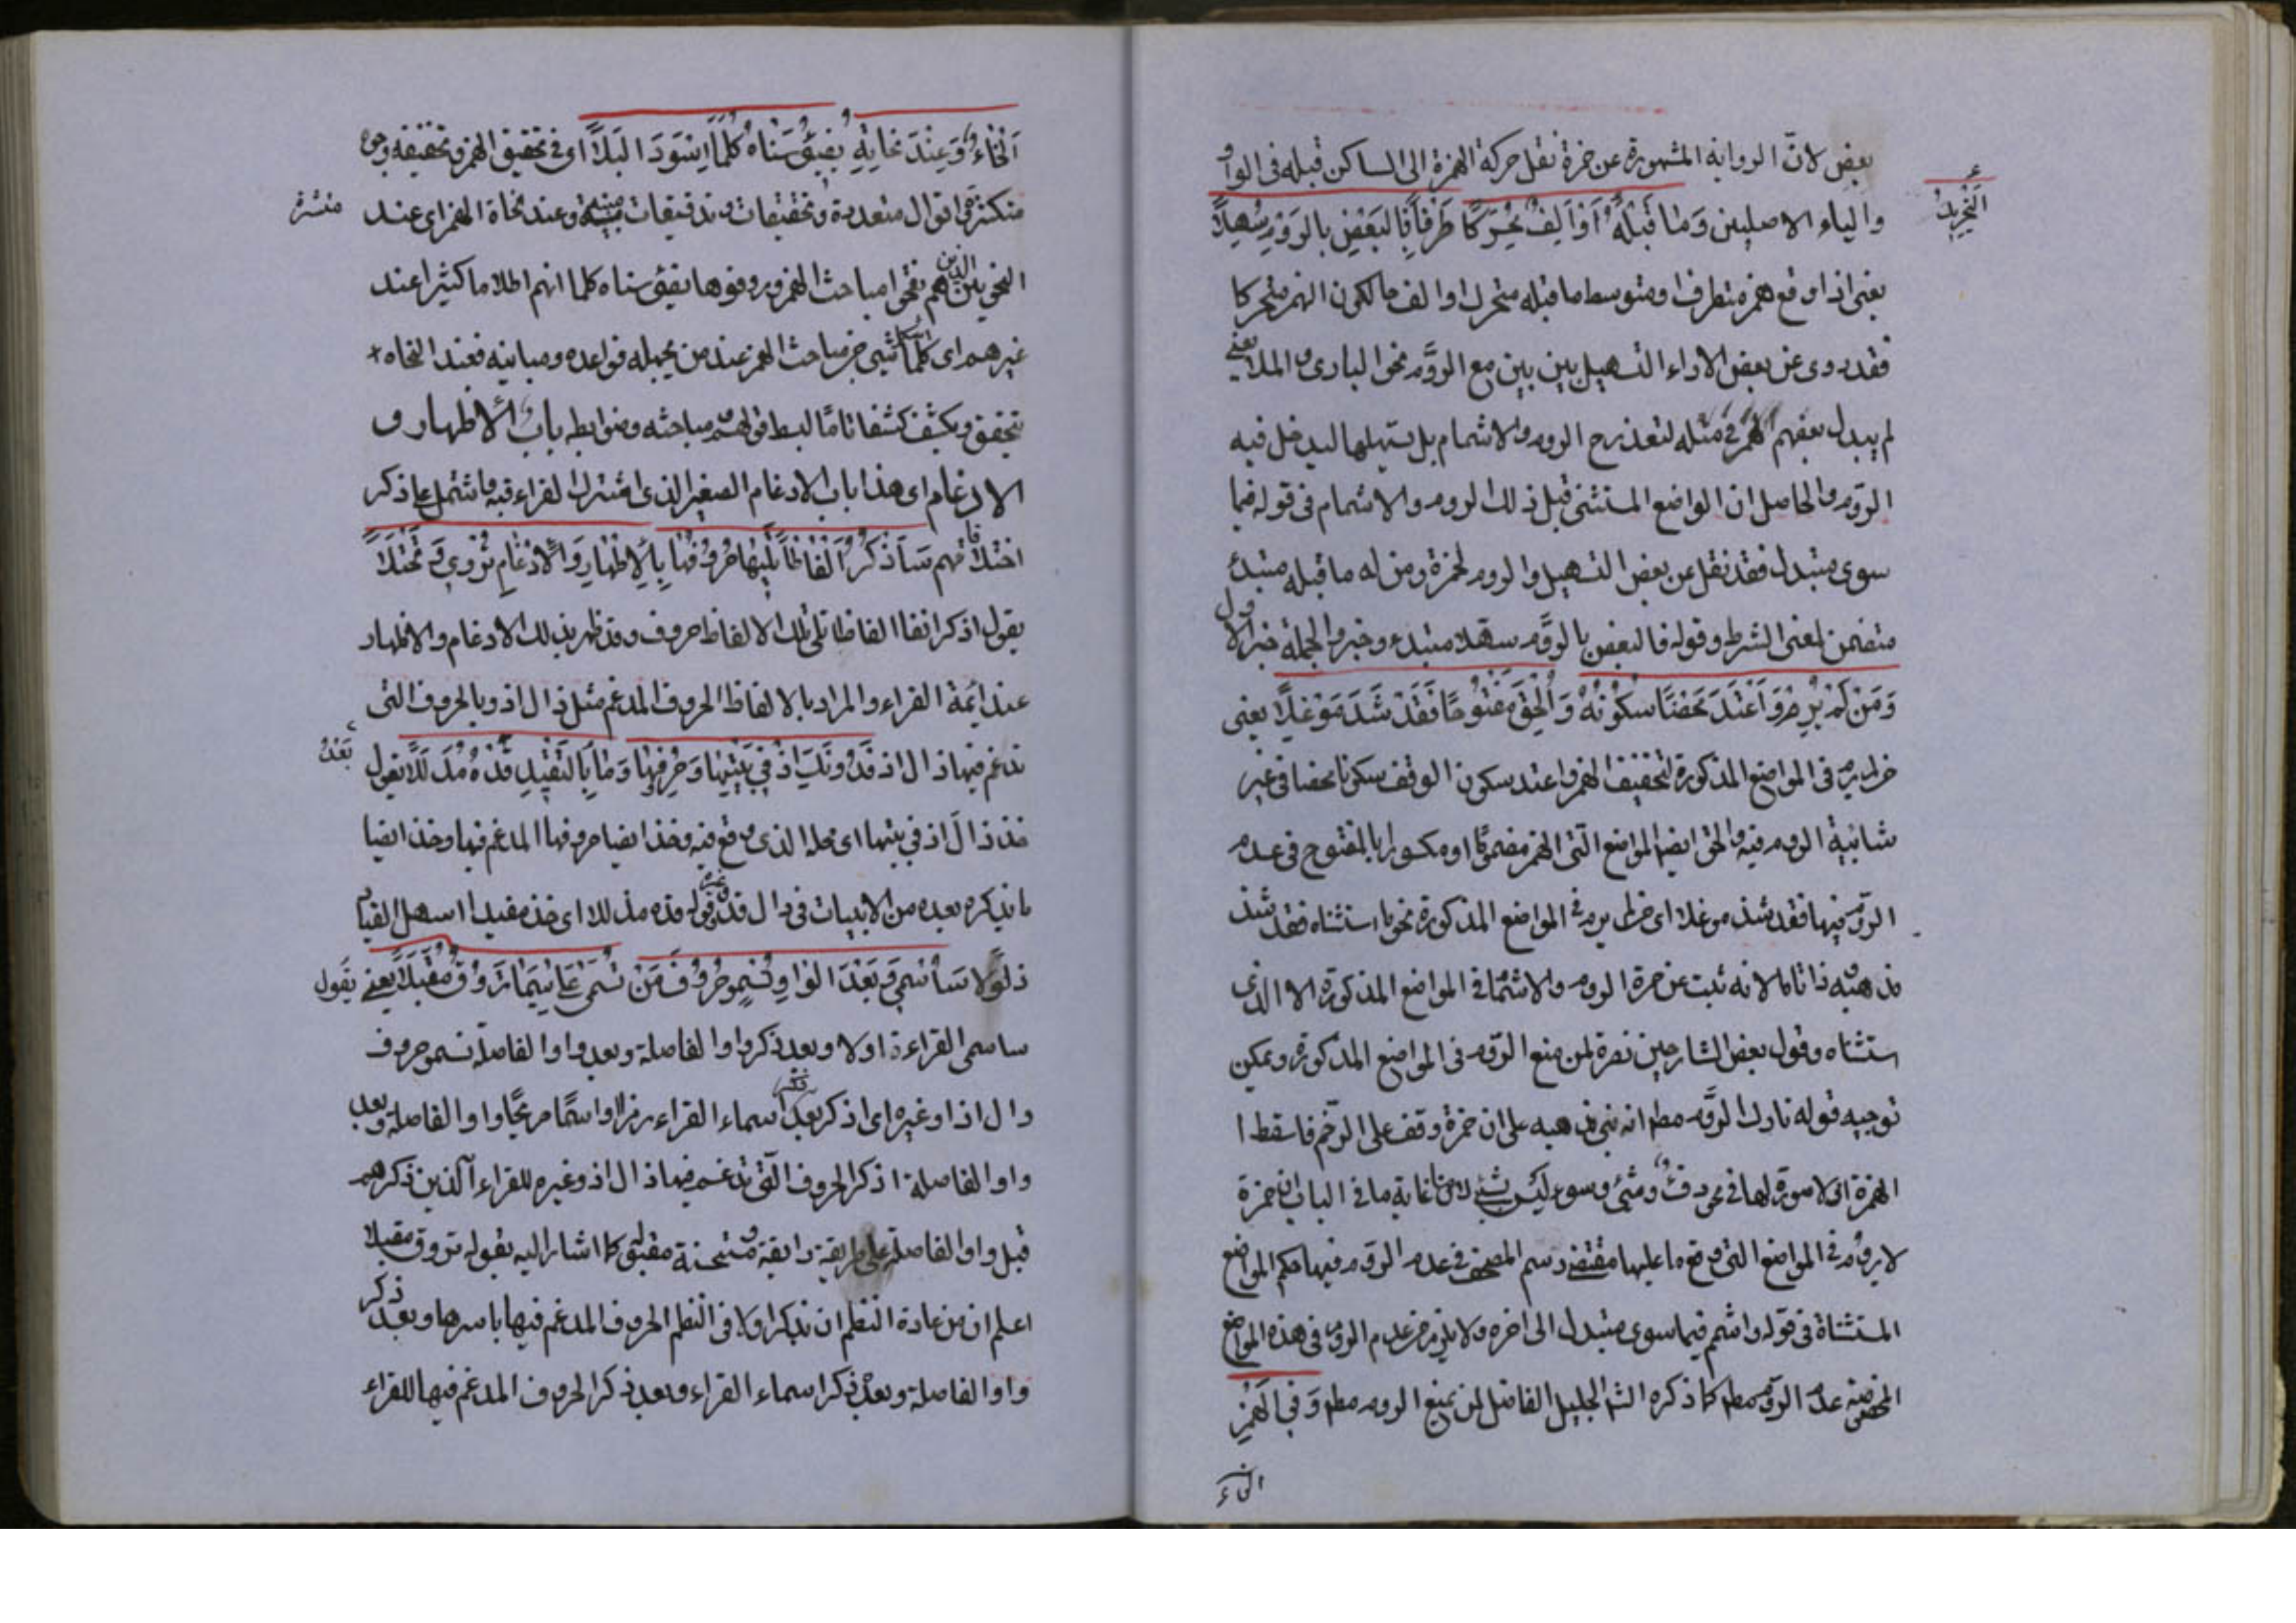 بعض لانّ الرواية المشهورة عن حمزة نقل حركة الهمزة الى الساكن قبله فى الواو
والياء الاصليين وَمَا قَبْلَهُ اَوْ اَلِفٌ مُحَرَّكًا طَرَفًا فَالبَعْضُ بِالرَوْمِ سُهِّلَا
التَحْرِيكُ
يعنى اذا وقع همز متطرف او متوسط ما قبله متحرك او الف مالكون الهمز متحركا
فقد روى عن بعض الاداء التسهيل بين بين مع الروَّم نحو البارئ والملا يعنى
لم يبدل بعضهم الهمز فى مثله لتعذر ح الروم والاشمام بل يسهلها ليدخل فيه
الروم والحاصل ان المواضع المستثنى قبل ذلك الروم والاشمام فى قوله فيما
سوى متبدل فقد نقل عن بعض التسهيل والروم لحمزة ومن له ما قبله مبتدئ
متضمن لمعنى الشرط وقوله فالبعض بالروَّم سهلا مبتدء وخبر والجملة خبر الاول
وَمَنْ لَمْ يَرُمْ وَاعْتَدَّ مَحْضًا سُكُونَهُ وَاَلْحَقَ مَفْتُوحًا فَقَدْ شَذَّ مُوْغِلًا يعنى
لم يرم فى المواضع المذكورة لتخفيف الهمز واعتد سكون الوقف سكونا محضا فى غير
شائبة الروم فيه والحق ايضا المواضع الّتى الهمز مضموما او مكسورا بالمفتوح فى عدم
الروّم فيها فقد شذ موغلا اى من لم يرم فى المواضع المذكورة نحو ما استثناه فقد شذ
مذهبه ذاتا ما لانه ثبت عن حمزة الروم والاشمام فى المواضع المذكورة الا الذى
استثناه وقول بعض الشارحين نصرة لمن منع الروّم فى المواضع المذكورة ويمكن
توجيه قوله تارك الروَّم مطم انه بنى مذهبه على ان حمزة وقف على الرسم فاسقط ا
الهمزة اذ لا صورة لها فى نحو دفٌ وشئ وسوء ليس بشئ لان غاية ما فى الباب ان حمزة
لا يروُم فى المواضع التى وقع ما عليها مقتضى رسم المصحف فى عدم الروّم فيها حكم المواضع
المستثناة فى قوله واشمم فيما سوى متبدل الى اخره ولا يلزم من عدم الروم فى هذه المواضع
المخصّصة عدم الروّم مطم كما ذكره الشا الجليل الفاضل لمن يمنع الروم مطم وَفِي الْهَمْزِ
انحاء
اَنْحَاءٌ وَعِنْدَ نُحَاتِهِ يُضِيْئُ سَنَاهُ كُلَّمَا اِسْوَدَ اَلْيَلَا اى فى تحقيق الهمز وتخفيفه وجوه
متكثرة اقوال متعددة وتحقيقات وتدقيقات مبينة وعند نحاة الهمز اى عند
منتشرة
النحويين الذين هم نحوا مباحث الهمز وروفوها يضئ سناه كلما انهم اظلاما كثيرا عند
غيرهم اى كلما اشكل شئ من مباحث الهمز عند من يجهله قواعده ومبانيه فعند النحاه
يتحقق ويكشف كشفا تامّا لبسط قولهم مباحثه وضوابطه باب الاظهار و
الادغام اى هذا باب الادغام الصغير الذى اشترك القراء فيه واشتمل على ذكر
اختلافاتهم سَاَذْكُرُ اَلْفَاظًا تَلِيْهَا حُرُوْفُهَا بِالْاِظْهَارِ وَالْاِدْغَامِ تُرْوى وَتُجْتَلَا
يقول اذكر انفا الفاظا تلى تلك الالفاظ حروف وقد ظهر بذلك الادغام والاظهار
عند ائمة القراء والمراد بالالفاظ الحروف المدغم مثل ذال اذ وبالحروف التى
تدغم فيها ذال اذ فَدُوْنَكَ اِذْ فِي بَيْتِهَا وَحُرُوفِهَا وَمَا بِالتَقْيِيدِ قُدْهُ مُذَلَّلًا يقول
بَعْدُ
خذ ذالَ اذ فى بيتها اى محله الذى وقع فيه وخذ ايضا حروفها المدغم فيها وخذ ايضا
ما يذكره بعده من الابيات فى دال قد وقوله قده مذللا اى خذه مقيدا اسهل القياد
ذلولا سَاُسْمِي وَبَعْدَ الْوَاوِ تُسْمو حُرُوفُ مَنْ تُسَمَّى عَلَى سِيْمَا تَرُوقُ مُقَبَّلَا يعنى يقول
ساسمى القراءة اولا وبعد ذكر واو الفاصلة وبعد واو الفاصلة تسمو حروف
دال اذ او غيره اى اذكر بعد ذكر اسماء القراء رمزا او اسمًا صريحًا واو الفاصلة وبعد
واو الفاصلة اذكر الحروف الّتى تدغم فيها ذال اذ وغيره للقراء الذين ذكرهم
قبل واو الفاصلة على طريقة رايقة مستحسنة مقبلة كما اشار اليه بقوله تروق مقبلا
اعلم ان من عادة الناظم ان يذكر اولا فى النظم الحروف المدغم فيها باسرها وبعد ذكر
واو الفاصلة وبعد ذكر اسماء القراء وبعد ذكر الحروف المدغم فيها للقراء